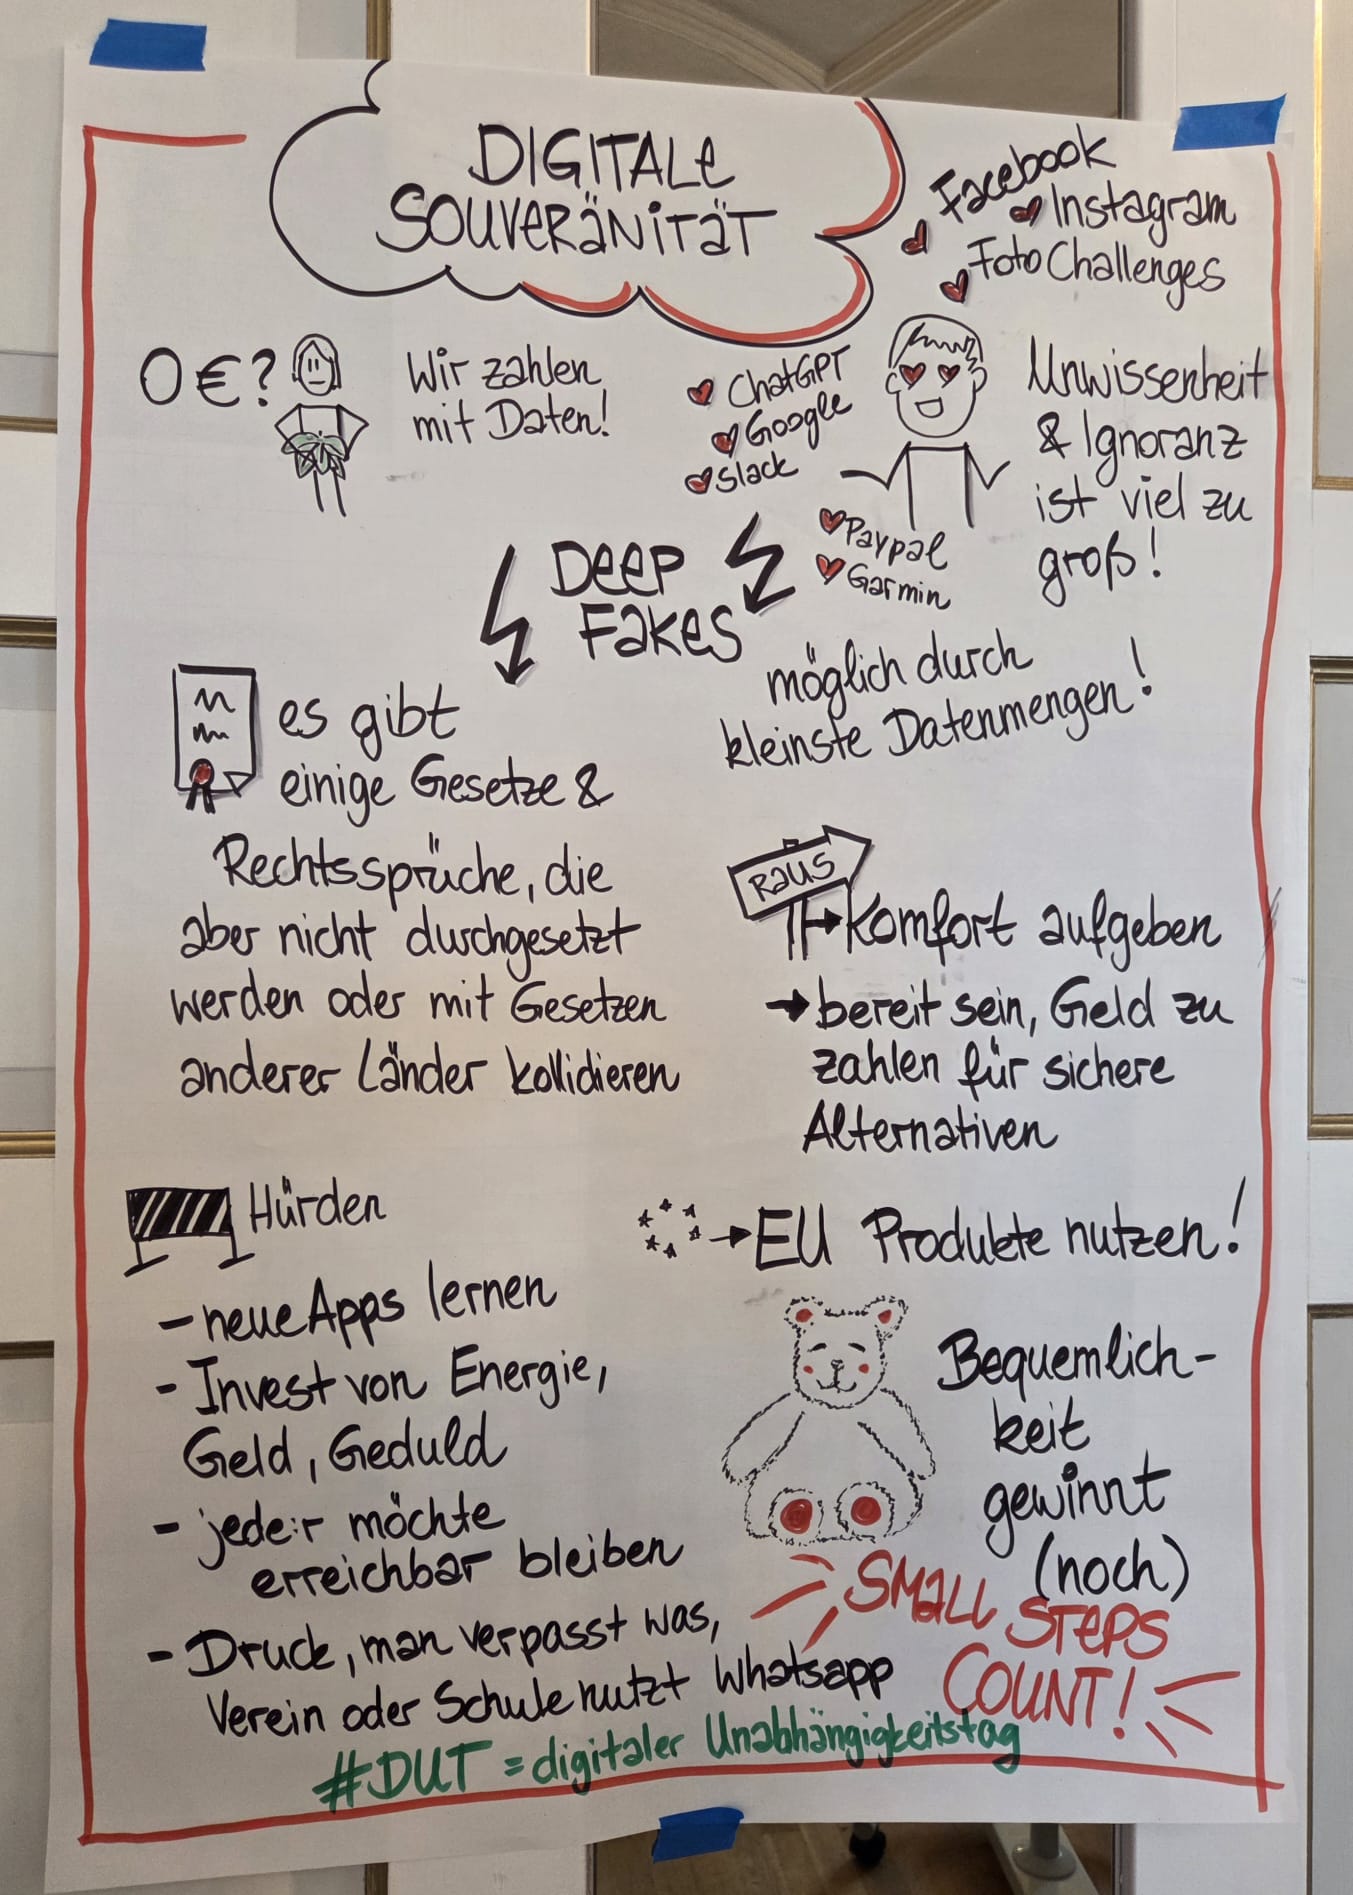 DIGITALE
SOUVERÄNITÄT
Facebook
Instagram
Foto Challenges
0 €?
Wir zahlen
mit Daten!
ChatGPT
Google
Slack
Paypal
Garmin
Unwissenheit
& Ignoranz
ist viel zu
groß!
DEEP
FAKES
möglich durch
kleinste Datenmengen!
es gibt
einige Gesetze &
Rechtssprüche, die
aber nicht durchgesetzt
werden oder mit Gesetzen
anderer Länder kollidieren
RAUS
→ Komfort aufgeben
→ bereit sein, Geld zu
zahlen für sichere
Alternativen
→ EU Produkte nutzen!
Hürden
- neue Apps lernen
- Invest von Energie,
Geld, Geduld
- jede:r möchte
erreichbar bleiben
- Druck, man verpasst was,
Verein oder Schule nutzt Whatsapp
Bequemlich-
keit
gewinnt
(noch)
SMALL STEPS
COUNT!
#DUT = digitaler Unabhängigkeitstag